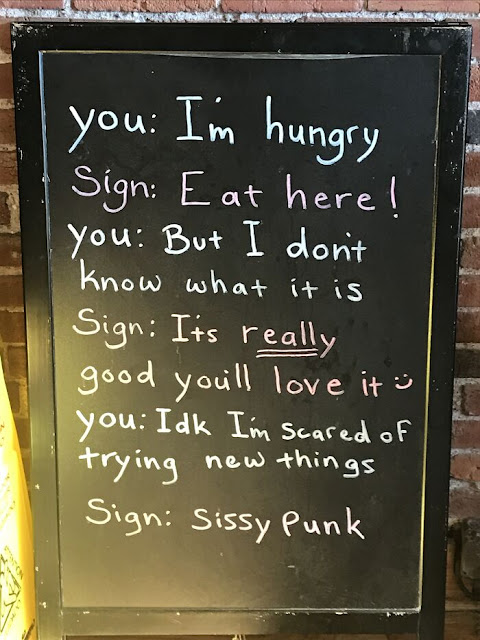 you: I'm hungry
Sign: Eat here!
you: But I don't
know what it is
Sign: It's really
good you'll love it :)
you: Idk I'm scared of
trying new things
Sign: Sissy Punk